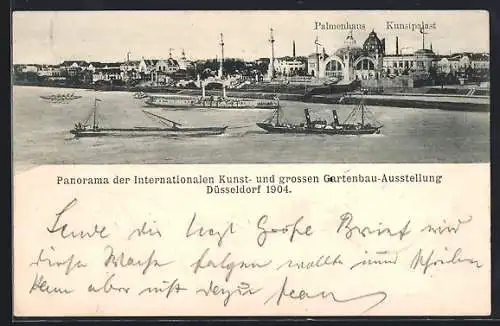 Palmenhaus Kunstpalast
Panorama der Internationalen Kunst- und grossen Gartenbau-Ausstellung
Düsseldorf 1904.
Sende dir Grüße Brief wird
diese Woche folgen wollte schreiben
kam aber nicht dazu